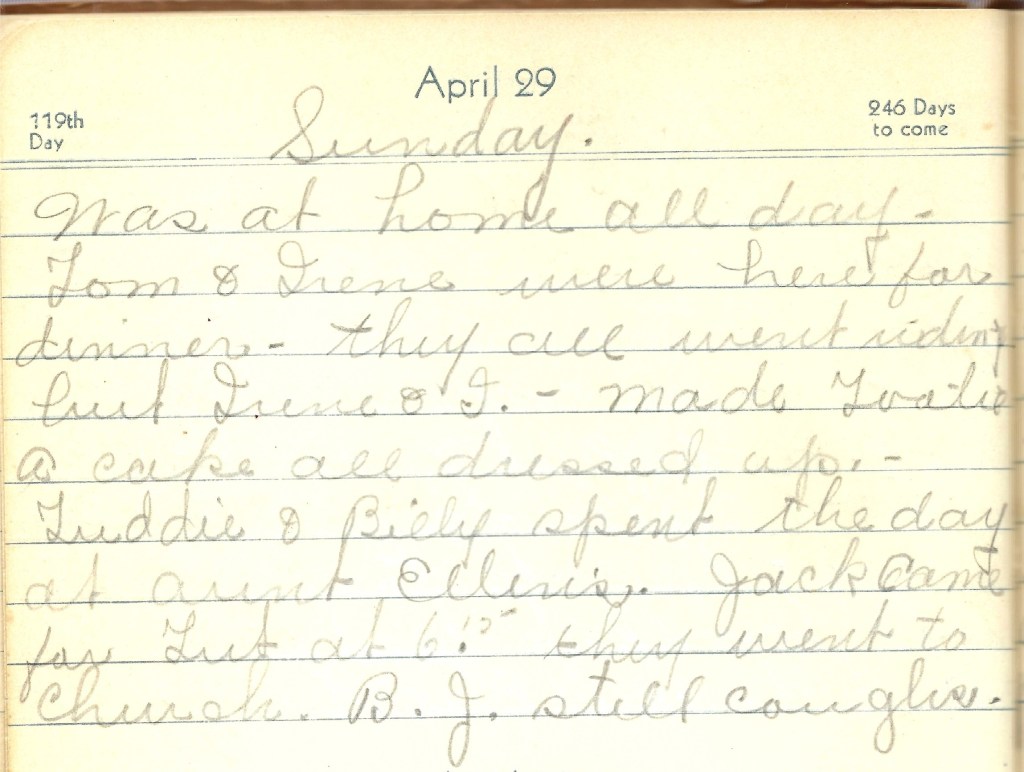 April 29
119th
Day
246 Days
to come
Sunday.
Was at home all day -
Tom & Irene were here for
dinner - they all went riding
but Irene & I. - made
a cake all dressed up. -
& Billy spent the day
at aunt Ellen's. Jack came
for Tut at 6:15 they went to
Church. B. J. still coughs.